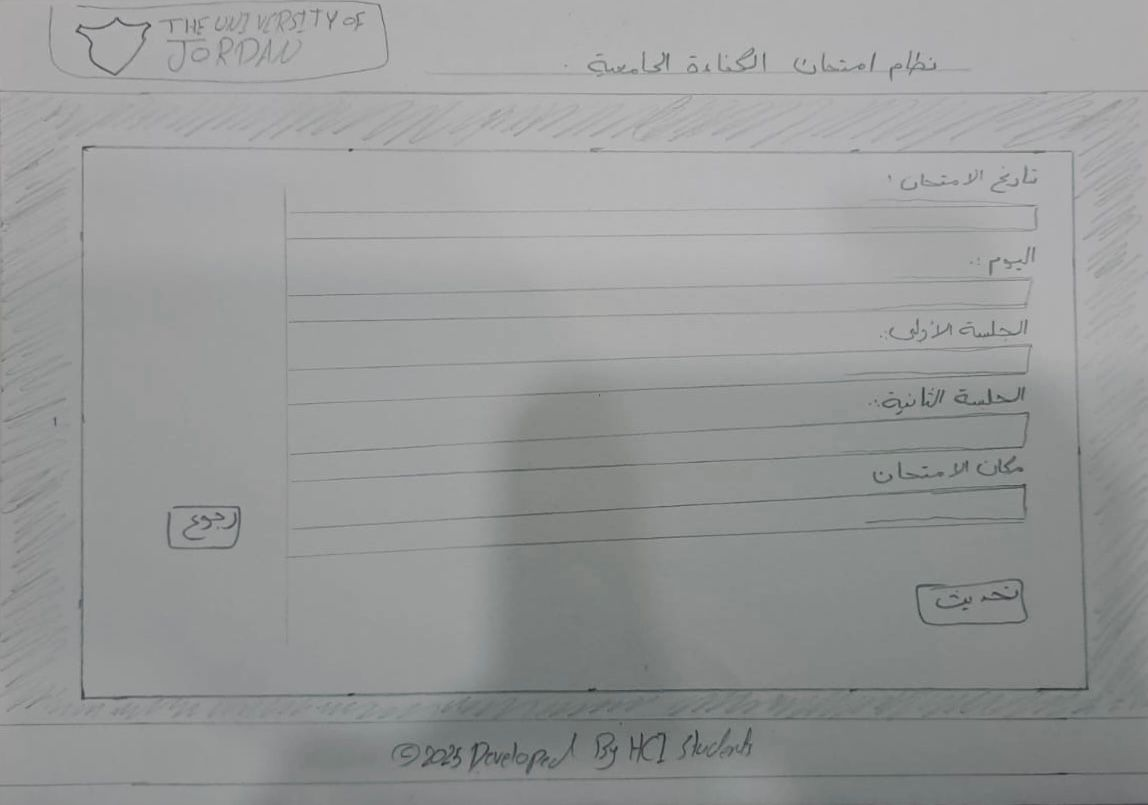 THE UNIVERSITY OF
JORDAN
نظام امتحان الكفاءة الجامعية
تاريخ الامتحان:
اليوم:
الجلسة الأولى:
الجلسة الثانية:
مكان الامتحان
رجوع
تحديث
©2025 Developed By HCI Students